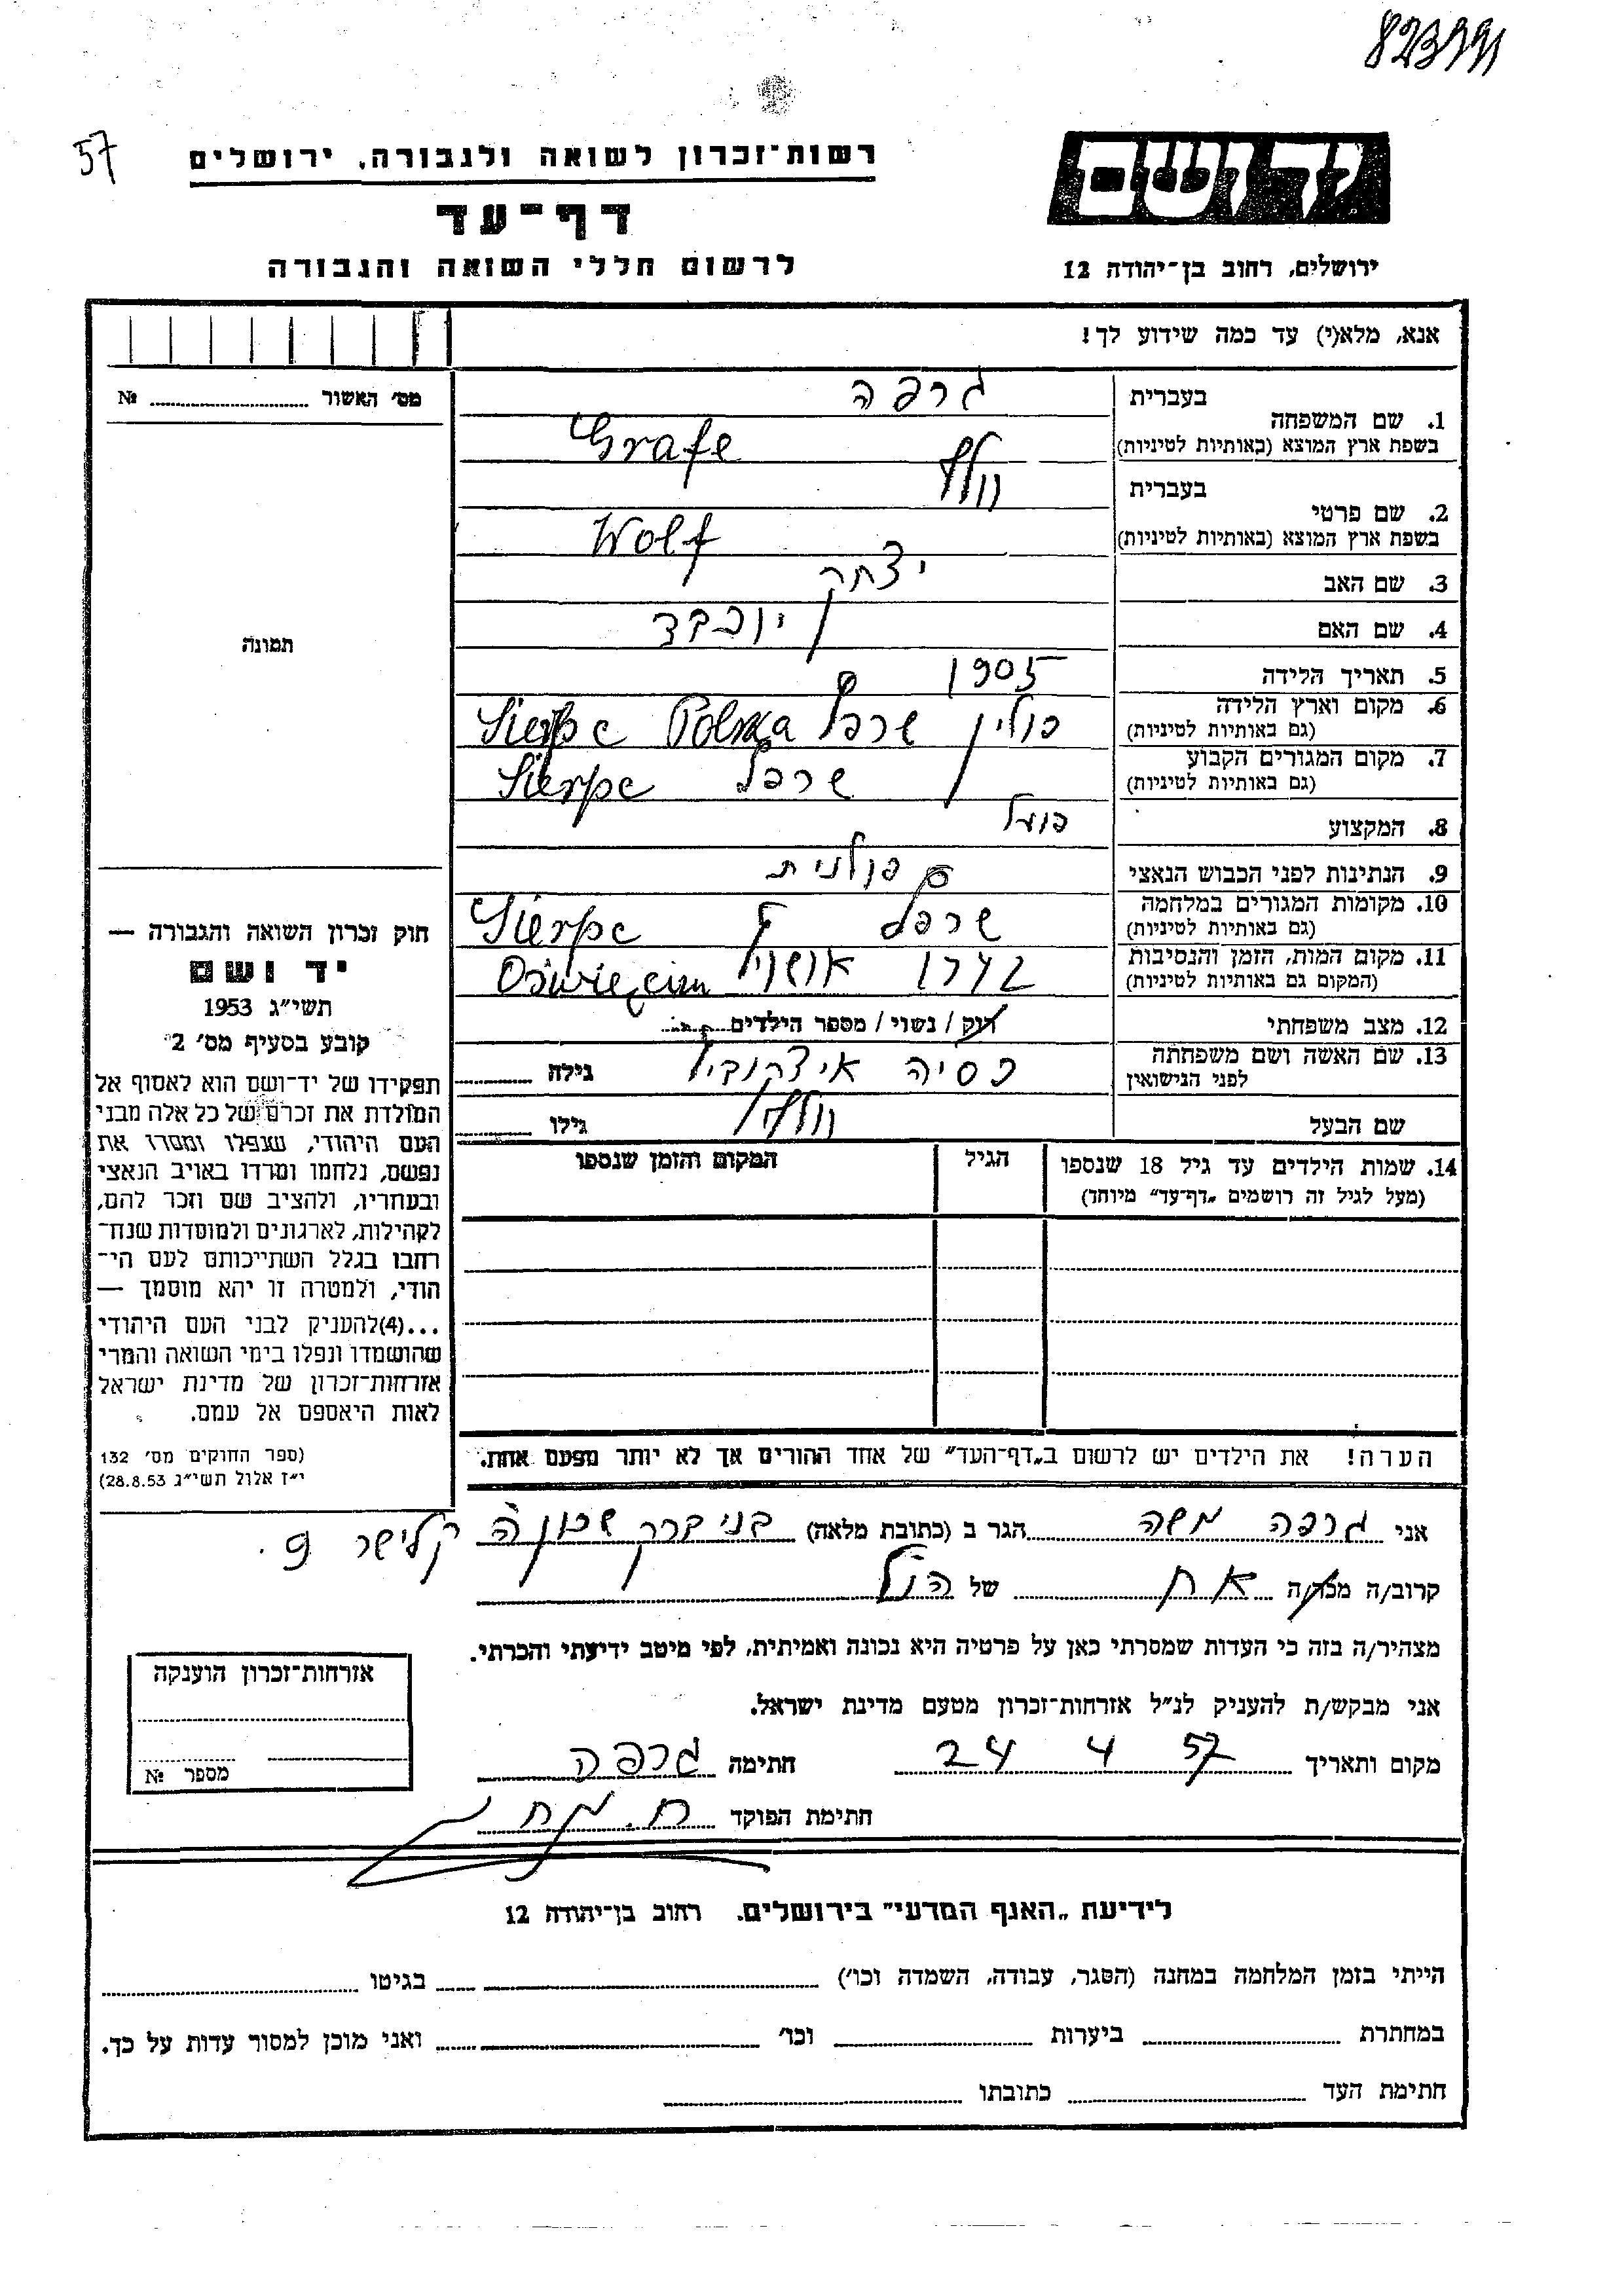 57
רשות־זכרון לשואה ולגבורה, ירושלים
דף־עד
לרשום חללי השואה והגבורה
יד ושם
ירושלים, רחוב בן־יהודה 12
אנא, מלא(י) עד כמה שידוע לך!
מס׳ האשור № 
1. שם המשפחה בעברית גרפה
בשפת ארץ המוצא (באותיות לטיניות) Grafe
2. שם פרטי בעברית וולף
בשפת ארץ המוצא (באותיות לטיניות) Wolf
3. שם האב יצחק
4. שם האם יוכבד
5. תאריך הלידה 1905
6. מקום וארץ הלידה (גם באותיות לטיניות) פולין שרפץ Polska Sierpc
7. מקום המגורים הקבוע (גם באותיות לטיניות) שרפץ Sierpc
8. המקצוע פועל
9. הנתינות לפני הכבוש הנאצי פולנית
10. מקומות המגורים במלחמה (גם באותיות לטיניות) שרפץ Sierpc
11. מקום המות, הזמן והנסיבות (המקום גם באותיות לטיניות) 1942 Oświęcim
12. מצב משפחתי רוק / נשוי / מספר הילדים
13. שם האשה ושם משפחתה לפני הנישואין פסיה גילה
שם הבעל וולף גילו
14. שמות הילדים עד גיל 18 שנספו
(מעל לגיל זה רושמים „דף־עד״ מיוחד)
הגיל
המקום והזמן שנספו
הערה! את הילדים יש לרשום ב„דף־העד״ של אחד ההורים אך לא יותר מפעם אחת.
תמונה
חוק זכרון השואה והגבורה —
יד ושם
תשי״ג 1953
קובע בסעיף מס׳ 2
תפקידו של יד־ושם הוא לאסוף אל
המולדת את זכרם של כל אלה מבני
העם היהודי, שנפלו ומסרו את
נפשם, נלחמו ומרדו באויב הנאצי
ובעוזריו, ולהציב שם וזכר להם,
לקהילות, לארגונים ולמוסדות שנח־
רבו בגלל השתייכותם לעם הי־
הודי, ולמטרה זו יהא מוסמך —
...(4)להעניק לבני העם היהודי
שהושמדו ונפלו בימי השואה והמרי
אזרחות־זכרון של מדינת ישראל
לאות היאספם אל עמם.
(ספר החוקים מס׳ 132
י״ז אלול תשי״ג 28.8.53)
אני גרפה משה הגר ב (כתובת מלאה) בני ברק שכונה קלישר 9.
קרוב/ה מכר/ה אח של הנ״ל
מצהיר/ה בזה כי העדות שמסרתי כאן על פרטיה היא נכונה ואמיתית, לפי מיטב ידיעתי והכרתי.
אני מבקש/ת להעניק לנ״ל אזרחות־זכרון מטעם מדינת ישראל.
מקום ותאריך 24 4 57 חתימה גרפה
חתימת הפוקד
אזרחות־זכרון הוענקה
מספר №
לידיעת „האגף המדעי״ בירושלים. רחוב בן־יהודה 12
הייתי בזמן המלחמה במחנה (הסגר, עבודה, השמדה וכו׳) בגיטו
במחתרת ביערות וכו׳ ואני מוכן למסור עדות על כך.
חתימת העד כתובתו